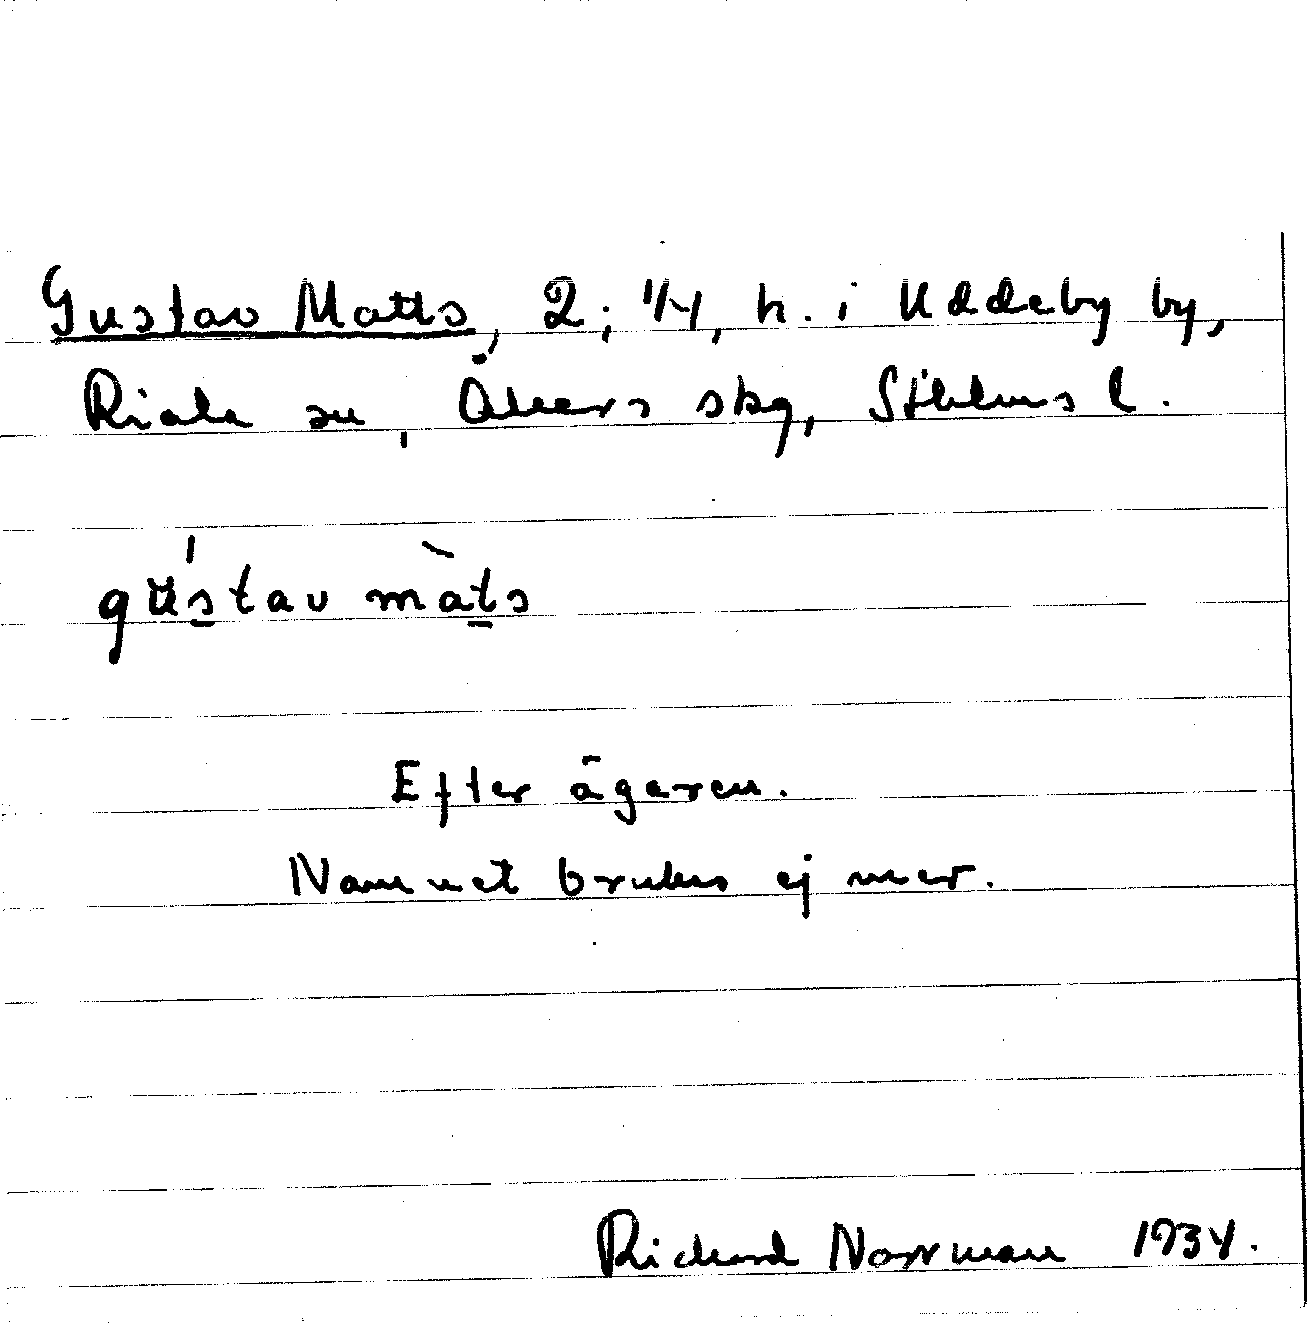 Gustav Matts, 2; 1/4, h. i Uddeby by,
Riala sn, Åkers skg, Sthlms l.
gu̇stav màts
Efter ägaren.
Namnet brukas ej mer.
Richard Norrman 1934.